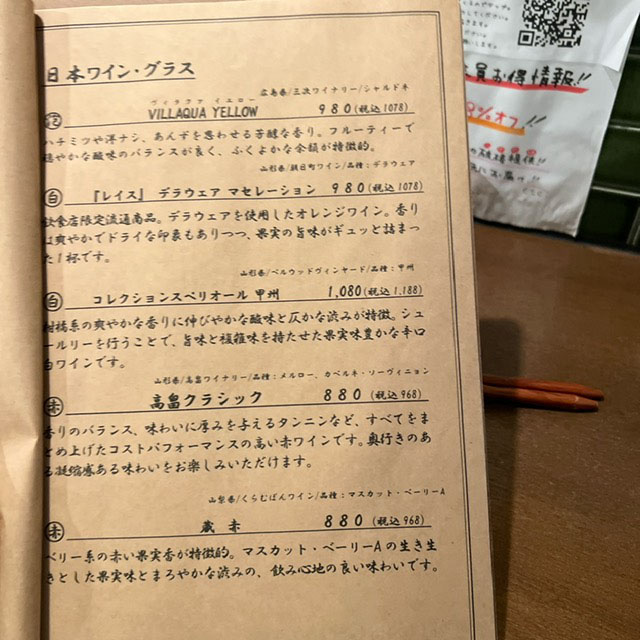 日本ワイン・グラス
広島県/三次ワイナリー/シャルドネ
ヴィラクア イエロー
VILLAQUA YELLOW 980(税込1078)
ハチミツや洋ナシ、あんずを思わせる芳醇な香り。フルーティーで
穏やかな酸味のバランスが良く、ふくよかな余韻が特徴的。
山形県/朝日町ワイン/品種:デラウェア
白 『レイス』 デラウェア マセレーション 980(税込1078)
飲食店限定流通商品。デラウェアを使用したオレンジワイン。香り
は爽やかでドライな印象もありつつ、果実の旨味がギュッと詰まっ
た1杯です。
山形県/ベルウッドヴィンヤード/品種:甲州
白 コレクションスペリオール 甲州 1,080(税込1,188)
柑橘系の爽やかな香りに伸びやかな酸味と仄かな渋みが特徴。シュ
ールリーを行うことで、旨味と複雑味を持たせた果実味豊かな辛口
白ワインです。
山形県/高畠ワイナリー/品種:メルロー、カベルネ・ソーヴィニョン
赤 高畠クラシック 880(税込968)
香りのバランス、味わいに厚みを与えるタンニンなど、すべてをま
とめ上げたコストパフォーマンスの高い赤ワインです。奥行きのあ
る凝縮感ある味わいをお楽しみいただけます。
山梨県/くらむぼんワイン/品種:マスカット・ベーリーA
赤 蔵 赤 880(税込968)
ベリー系の赤い果実香が特徴的。マスカット・ベーリーAの生き生
きとした果実味とまろやかな渋みの、飲み心地の良い味わいです。
員お得情報!!
%オフ!!